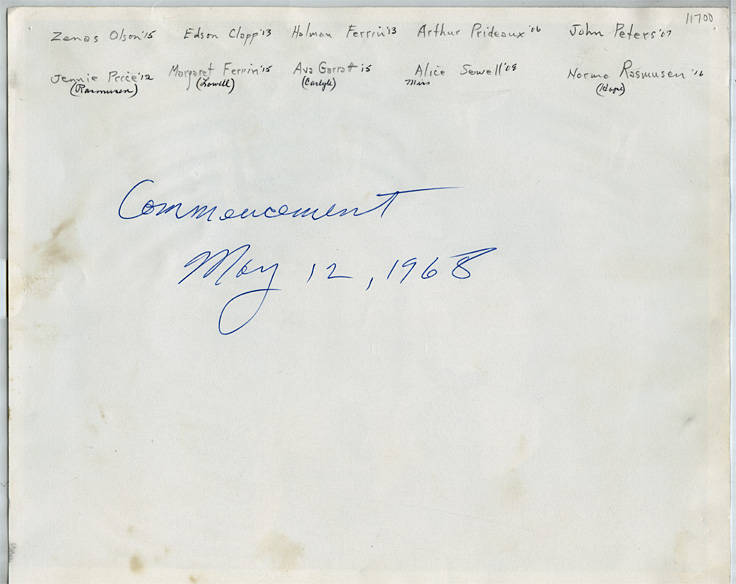 11700
Zenas Olson '15 Edson Clapp '13 Holman Ferrin '13 Arthur Prideaux '06 John Peters '07
Jennie Price '12 Margaret Ferrin '15 Ava Garratt 15 Alice Sewell '08 Norma Rasmusen '16
(Rasmusen) (Lowell) (Carlyle) Miss (Hope)
Commencement
May 12, 1968